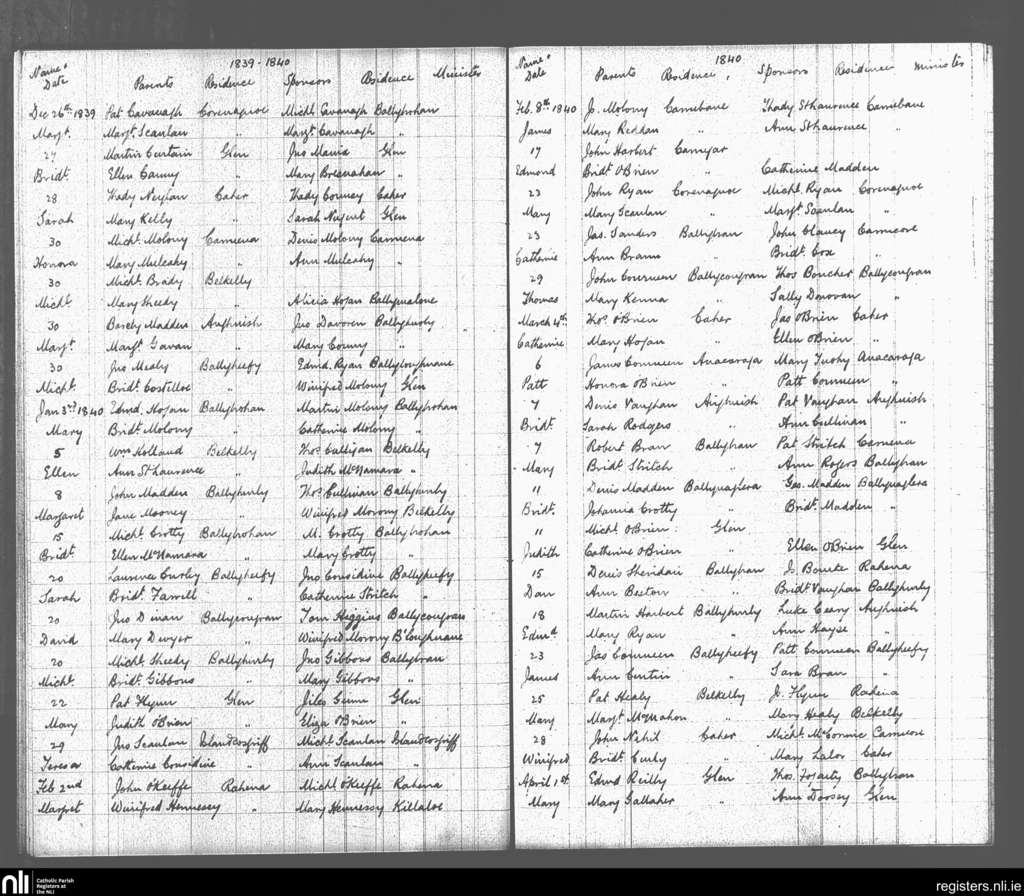 1839 - 1840
Name & Date Parents Residence Sponsors Residence Minister
Dec 26th 1839 Pat Cavanagh Corevaguoe Michl Cavanagh Ballybrohan
Margt. Margt. Scanlan " Margt. Cavanagh "
27 Martin Curtain Glen Jno Glen
Bridt. Ellen Canny " Mary Bresnahan "
28 Thady Neylan Caher Thady Conney Caher
Sarah Mary Kelly " Sarah Nugent Glen
30 Michl. Molony Denis Molony
Honora Mary Mulcahy " Ann Mulcahy "
30 Michl. Brady Belkelly
Michl. Mary Sheedy " Alicia Hogan Ballygualone
30 Madden Aughnish Jno Davoren Ballyhurly
Margt. Margt. Gavan " Mary "
30 Jno Healy Ballyheefy Edmd. Ryan
Michl. Bridt. Costelloe " Winifred Molony Glen
Jan 3rd 1840 Edmd. Hogan Ballybrohan Martin Molony Ballybrohan
Mary Bridt. Molony " Catherine Molony "
5 Wm Holland Belkelly Thos. Culligan Belkelly
Ellen Ann St Laurence " Judith McNamara "
8 John Madden Ballyhurly Thos. Cullinan Ballyhurly
Margaret Jane Mooney " Winifred Morony Belkelly
15 Michl. Crotty Ballybrohan M. Crotty Ballybrohan
Bridt. Ellen McNamara " Mary Crotty "
20 Laurence Curley Ballyheefy Jno Considine Ballyheefy
Sarah Bridt. Farrell " Catherine Stritch "
20 Jno Dinan Ballycougran Tom Higgins Ballycougran
David Mary Dwyer " Winifred Morony B'loughnane
20 Michl. Sheedy Ballyhurly Jno Gibbons Ballybran
Michl. Bridt. Gibbons " Mary Gibbons "
22 Pat Flynn Glen Jiles Glen
Mary Judith O'Brien " Eliza O'Brien "
29 Jno Scanlan Islandcosgriff Michl. Scanlan Islandcosgriff
Teresa Catherine Considine " Ann Scanlan "
Feb 2nd John O'Keeffe Rahena Michl O'Keeffe Rahena
Margret Winifred Hennessey " Mary Hennessy Killaloe
1840
Name & Date Parents Residence Sponsors Residence Minister
Feb. 8th 1840 J. Molony Carnebane Thady St Laurence Carnebane
James Mary Reddan " Ann St Laurence "
17 John Harbert
Edmond Bridt. O'Brien " Catherine Madden
23 John Ryan Corevaguoe Michl. Ryan Corevaguoe
Mary Mary Scanlan " Margt. Scanlan "
23 Jas. Sanders Ballybran John Clancy
Catherine Ann " Bridt. Cox "
29 John Ballycougran Thos Boucher Ballycougran
Thomas Mary Kenna " Sally Donovan "
March 4th Thos. O'Brien Caher Jas O'Brien Caher
Catherine Mary Hogan " Ellen O'Brien "
6 James Anacaraga Mary Tuohy Anacaraga
Patt Honora O'Brien " Patt "
7 Denis Vaughan Aughnish Pat Vaughan Aughnish
Bridt. Sarah Rodgers " Ann Cullinan "
7 Robert Bran Ballybran Pat Stritch
Mary Bridt. Stritch " Ann Rogers Ballybran
11 Denis Madden Ballynaglera Geo. Madden Ballynaglera
Bridt. Johanna Crotty " Bridt. Madden "
11 Michl. O'Brien Glen
Judith Catherine O'Brien " Ellen O'Brien Glen
15 Denis Sheridan Ballybran J. Bourke Rahena
Dan Ann Beeton " Bridt. Vaughan Ballyhurly
18 Martin Harbert Ballyhurly Luke Aughnish
Edmd Mary Ryan " Ann Hayse "
23 Jas Ballyheefy Patt Ballyheefy
James Ann Curtin " Sara Bran "
25 Pat Healy Belkelly J. Flynn Rahena
Mary Margt. McMahon " Mary Healy Belkelly
28 John Nihil Caher Michl. McCormic
Winifred Bridt. Curly " Mary Lalor Caher
April 1st Edmd Reilly Glen Thos. Fogarty Ballybran
Mary Mary Gallaher " Ann Dorsey Glen
nli
Catholic Parish
Registers at
the NLI
registers.nli.ie